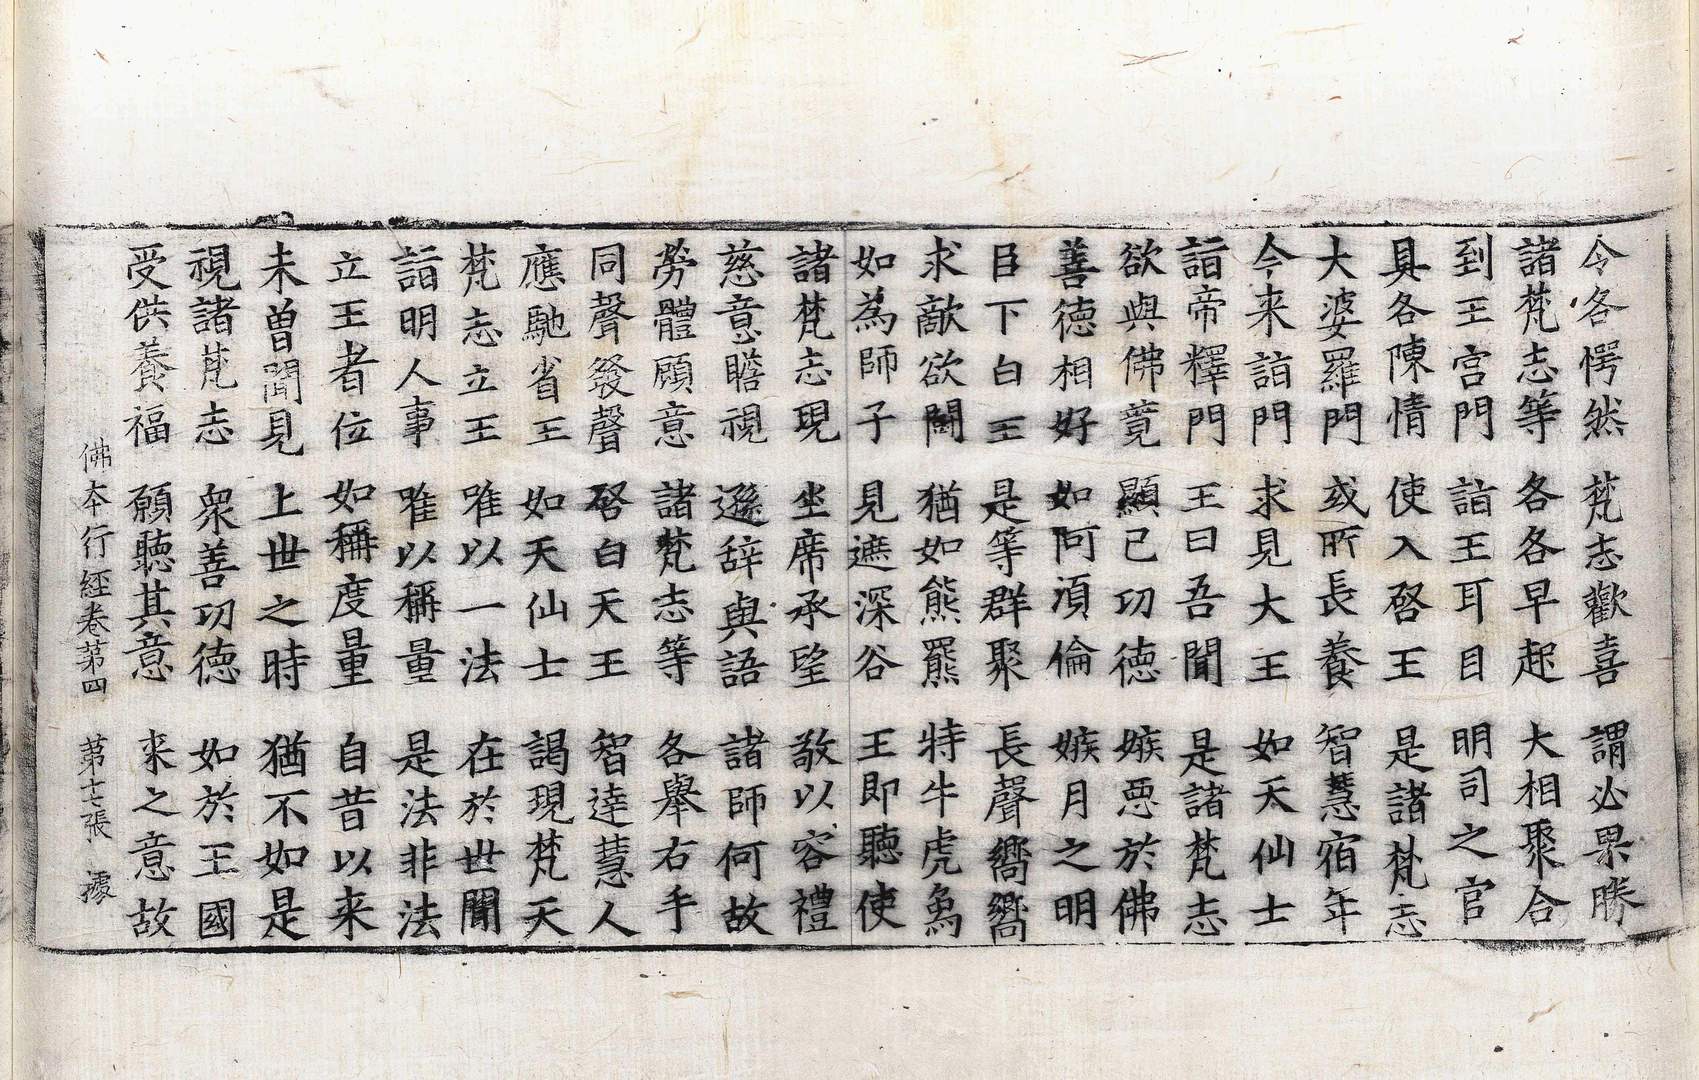 令各愕然 梵志歡喜 謂必果勝
諸梵志等 各各早起 大相聚合
到王宮門 詣王耳目 明司之官
具各陳情 使入啓王 是諸梵志
大婆羅門 或所長養 智慧宿年
今来詣門 求見大王 如天仙士
詣帝釋門 王曰吾聞 是諸梵志
欲與佛竟 顯己功德 嫉惡於佛
善德相好 如阿須倫 嫉月之明
臣下白王 是等群聚 長聲嚮嚮
求敵欲鬪 猶如熊羆 特牛虎象
如為師子 見遮深谷 王即聽使
諸梵志現 坐席承望 敬以容禮
慈意瞻視 遜辞與語 諸師何故
勞體顧意 諸梵志等 各舉右手
同聲發聲 啓白天王 智達慧人
應馳省王 如天仙士 謁現梵天
梵志立王 唯以一法 在於世間
詣明人事 唯以稱量 是法非法
立王者位 如稱度量 自昔以来
未曾聞見 上世之時 猶不如是
視諸梵志 衆善功德 如於王國
受供養福 願聽其意 来之意故
佛本行經卷第四 第十七張 據